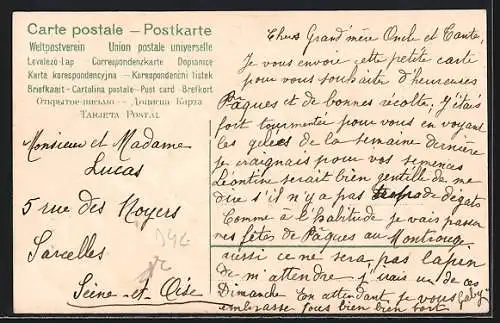 Carte postale — Postkarte
Weltpostverein Union postale universelle
Levelezö-Lap Correspondenzkarte Dopisnice
Karta korespondencyjna — Korespondenční lístek
Briefkaart - Cartolina postale - Post card - Brefkort
Открытое письмо — Дописна Карта
Tarjeta Postal
Monsieur et Madame
Lucas
5 rue des Noyers
Sarcelles
Seine-et-Oise
Chers Grand'mère Oncle et Tante,
Je vous envoie cette petite carte
pour vous souhaiter d'heureuses
Pâques et de bonnes récolte. J'étais
fort tourmentée pour vous en voyant
les gelées de la semaine dernière
je craignais pour vos semences
Léontine serait bien gentille de me
dire s'il n'y a pas trop de dégats
Comme à l'habitude je vais passer
mes fêtes de Pâques au Montrouge
aussi ce ne sera pas la peine
de m'attendre j'irais un de ces
Dimanche En attendant je vous
embrasse tous bien bien fort
Gaby